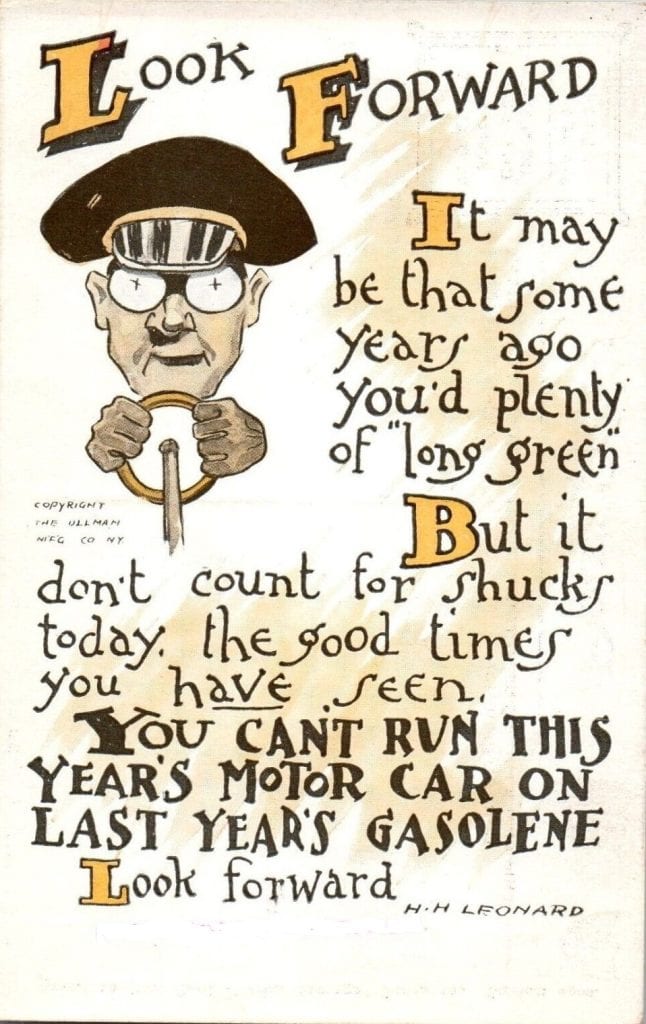 Look Forward
It may
be that some
years ago
you'd plenty
of "long green"
COPYRIGHT
THE ULLMAN
M'F'G CO NY.
But it
don't count for shucks
today. the good times
you have seen.
YOU CAN'T RUN THIS
YEAR'S MOTOR CAR ON
LAST YEAR'S GASOLENE
Look forward
H.H LEONARD